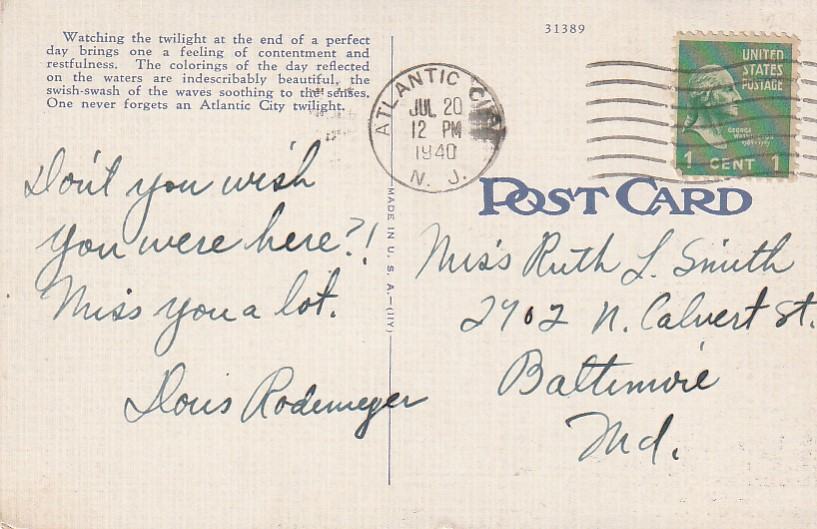 Watching the twilight at the end of a perfect
day brings one a feeling of contentment and
restfulness. The colorings of the day reflected
on the waters are indescribably beautiful, the
swish-swash of the waves soothing to the senses.
One never forgets an Atlantic City twilight.
31389
ATLANTIC CITY
JUL 20
12 PM
1940
N. J.
UNITED
STATES
POSTAGE
GEORGE
WASHINGTON
1 CENT 1
POST CARD
MADE IN U. S. A.
Don't you wish
you were here?!
Miss you a lot.
Doris Rodemeyer
Miss Ruth L. Smith
2902 N. Calvert St.
Baltimore
Md.